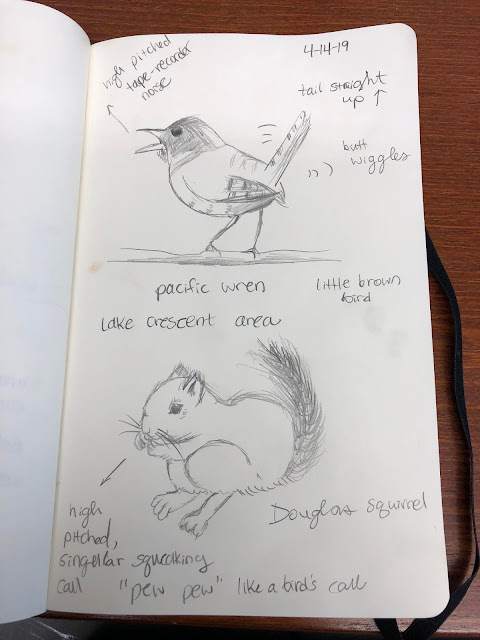 4-14-19
high pitched
tape-recorder
noise
tail straight
up ↑
butt
wiggles
pacific wren
little brown
bird
lake crescent area
Douglas squirrel
high
pitched,
singular squeaking
call "pew pew" like a bird's call